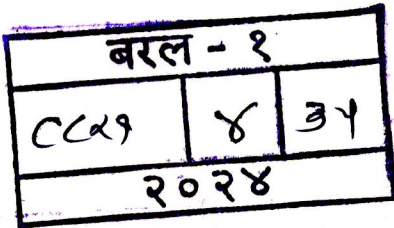 बरल - १
८८२१ ४ ३५
२०२४